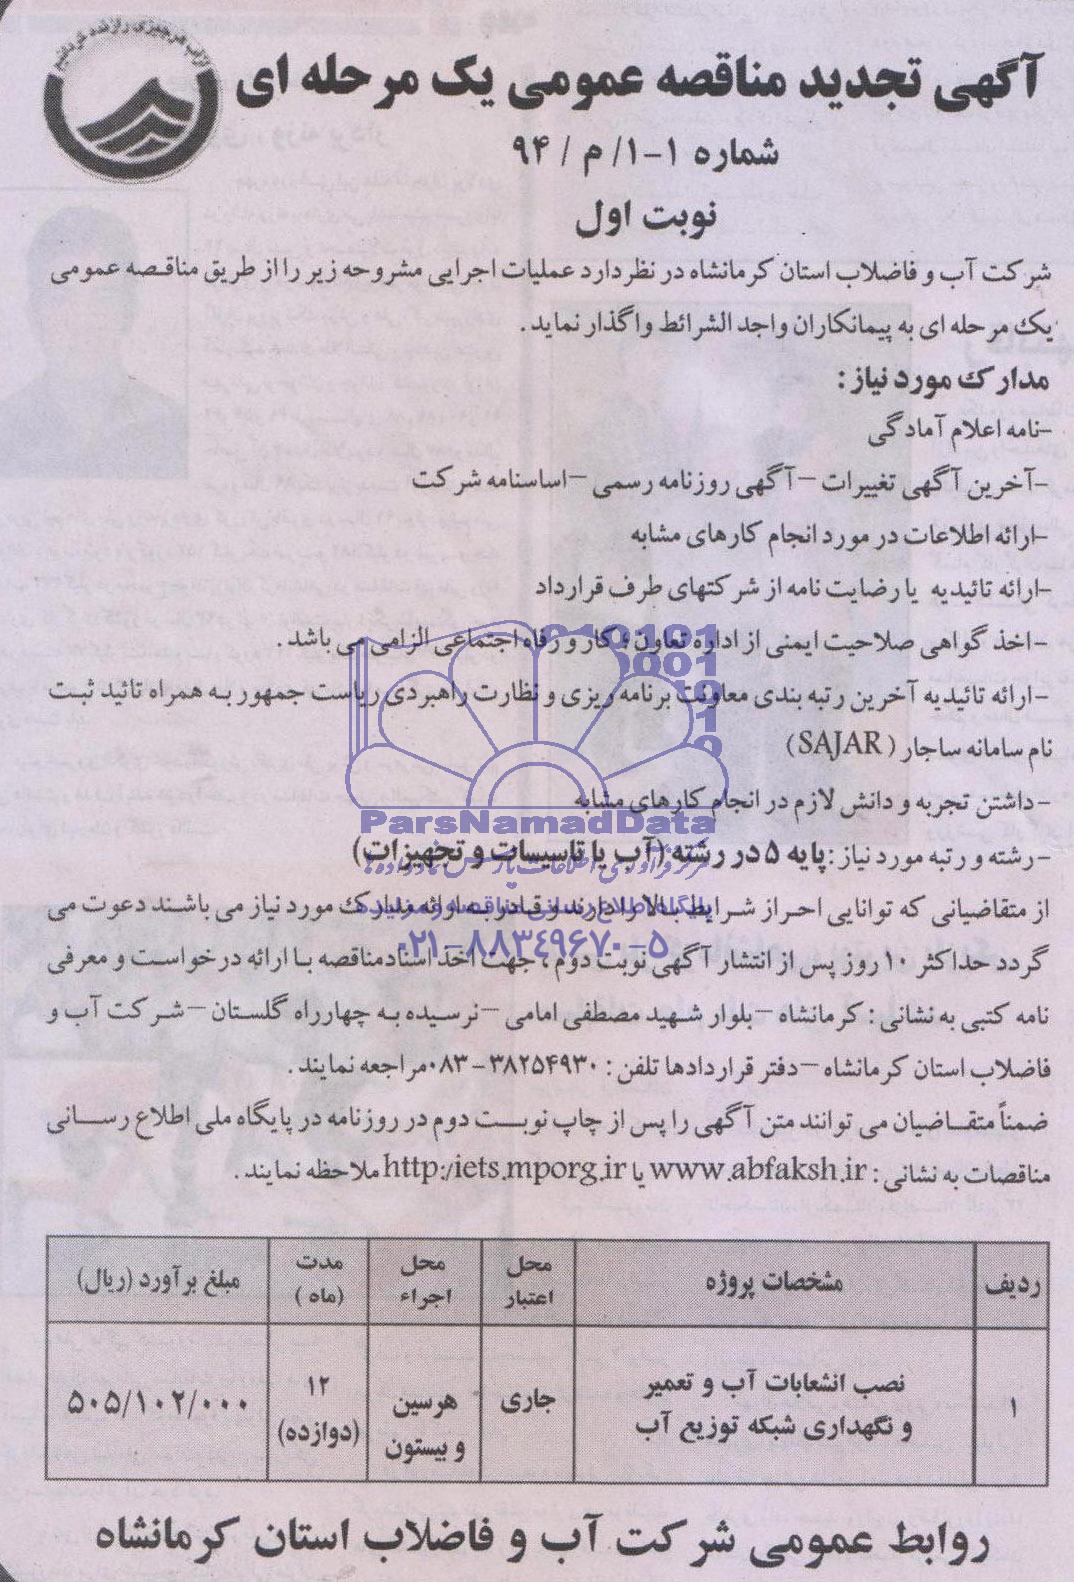 آگهی تجدید مناقصه عمومی یک مرحله ای
شماره ۱-۱/ م / ۹۴
نوبت اول
شرکت آب و فاضلاب استان کرمانشاه در نظر دارد عملیات اجرایی مشروحه زیر را از طریق مناقصه عمومی
یک مرحله ای به پیمانکاران واجد الشرائط واگذار نماید.
مدارک مورد نیاز:
-نامه اعلام آمادگی
-آخرین آگهی تغییرات -آگهی روزنامه رسمی -اساسنامه شرکت
-ارائه اطلاعات در مورد انجام کارهای مشابه
-ارائه تائیدیه یا رضایت نامه از شرکتهای طرف قرارداد
-اخذ گواهی صلاحیت ایمنی از اداره تعاون، کار و رفاه اجتماعی الزامی می باشد.
-ارائه تائیدیه آخرین رتبه بندی معاونت برنامه ریزی و نظارت راهبردی ریاست جمهور به همراه تائید ثبت
نام سامانه ساجار (SAJAR)
-داشتن تجربه و دانش لازم در انجام کارهای مشابه
ParsNamadData
-رشته و رتبه مورد نیاز: پایه ۵ در رشته (آب یا تاسیسات و تجهیزات)
از متقاضیانی که توانایی احراز شرایط بالا را دارند و قادر به ارائه مدارک مورد نیاز می باشند دعوت می
۰۲۱-۸۸۳۴۹۶۷۰-۵
گردد حداکثر ۱۰ روز پس از انتشار آگهی نوبت دوم، جهت اخذ اسناد مناقصه با ارائه درخواست و معرفی
نامه کتبی به نشانی: کرمانشاه -بلوار شهید مصطفی امامی -نرسیده به چهارراه گلستان -شرکت آب و
فاضلاب استان کرمانشاه -دفتر قراردادها تلفن: ۳۸۲۵۴۹۳۰-۰۸۳ مراجعه نمایند.
ضمناً متقاضیان می توانند متن آگهی را پس از چاپ نوبت دوم در روزنامه در پایگاه ملی اطلاع رسانی
مناقصات به نشانی: www.abfaksh.ir یا http:/iets.mporg.ir ملاحظه نمایند.
ردیف مشخصات پروژه محل اعتبار محل اجراء مدت (ماه) مبلغ برآورد (ریال)
۱ نصب انشعابات آب و تعمیر و نگهداری شبکه توزیع آب جاری هرسین و بیستون ۱۲ (دوازده) ۵۰۵/۱۰۲/۰۰۰
روابط عمومی شرکت آب و فاضلاب استان کرمانشاه